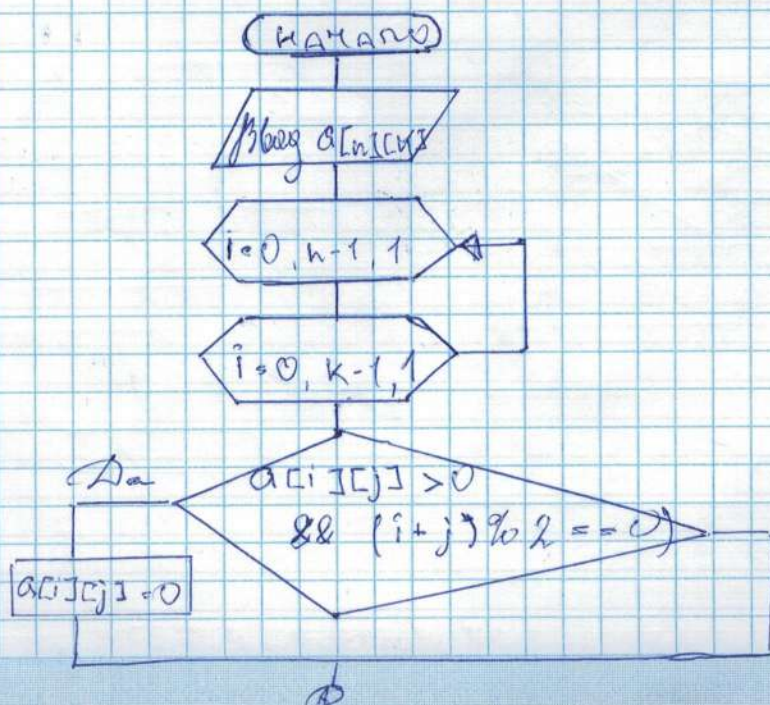 НАЧАЛО
Ввод a[n][k]
i=0, n-1, 1
i=0, k-1, 1
Да
a[i][j] >0
&& (i+j)%2 ==0)
a[i][j]=0